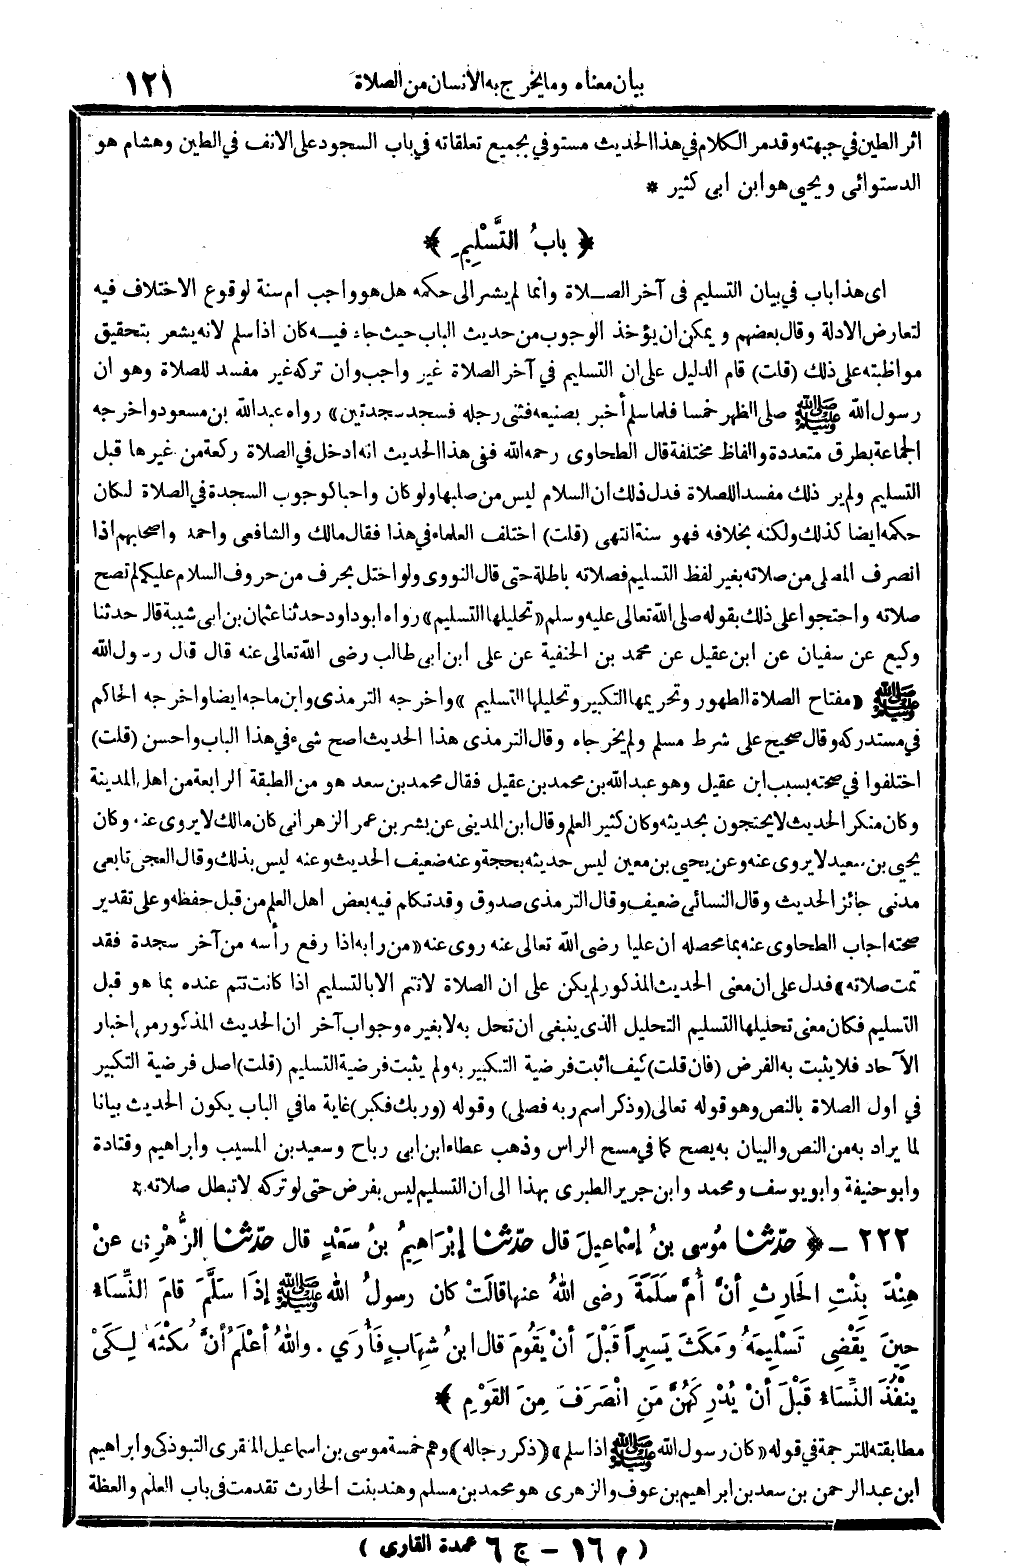 بيان معناه وما يخرج به الأنسان من الصلاة ١٢١
اثر الطين في جبهته وقد مر الكلام في هذا الحديث مستوفي بجميع تعلقاته في باب السجود على الانف في الطين وهشام هو
الدستوائى ويحيى هو ابن ابى كثير *
﴿ بابُ التَّسْلِيمِ ﴾
اى هذا باب في بيان التسليم فى آخر الصـلاة وانما لم يشر الى حكمه هل هو واجب ام سنة لوقوع الاختلاف فيه
لتعارض الادلة وقال بعضهم ويمكن ان يؤخذ الوجوب من حديث الباب حيث جاء فيـه كان اذا سلم لانه يشعر بتحقيق
مواظبته على ذلك (قلت) قام الدليل على ان التسليم في آخر الصلاة غير واجب وان تركه غير مفسد للصلاة وهو ان
رسول الله ﷺ صلى الظهر خمسا فلما سلم أخبر بصنيعه فثنى رجله فسجد سجدتين» رواه عبد الله بن مسعود واخرجه
الجماعة بطرق متعددة والفاظ مختلفة قال الطحاوى رحمه الله ففى هذا الحديث انه ادخل في الصلاة ركعة من غيرها قبل
التسليم ولم ير ذلك مفسدا للصلاة فدل ذلك ان السلام ليس من صلبها ولو كان واجبا كوجوب السجدة في الصلاة لكان
حكمه ايضا كذلك ولكنه بخلافه فهو سنة انتهى (قلت) اختلف العلماء في هذا فقال مالك والشافعى واحمد واصحابهم اذا
انصرف المصلى من صلاته بغير لفظ التسليم فصلاته باطلة حتى قال النووى ولو اختل بحرف من حروف السلام عليكم لم تصح
صلاته واحتجوا على ذلك بقوله صلى الله تعالى عليه وسلم «تحليلها التسليم» رواه ابو داود حدثنا عثمان بن ابى شيبة قال حدثنا
وكيع عن سفيان عن ابن عقيل عن محمد بن الحنفية عن على ابن ابى طالب رضى الله تعالى عنه قال قال رسول الله
ﷺ «مفتاح الصلاة الطهور وتحريمها التكبير وتحليلها التسليم» واخرجه الترمذى وابن ماجه ايضا واخرجه الحاكم
في مستدركه وقال صحيح على شرط مسلم ولم يخرجاه وقال الترمذى هذا الحديث اصح شىء في هذا الباب واحسن (قلت)
اختلفوا في صحته بسبب ابن عقيل وهو عبد الله بن محمد بن عقيل فقال محمد بن سعد هو من الطبقة الرابعة من اهل المدينة
وكان منكر الحديث لا يحتجون بحديثه وكان كثير العلم وقال ابن المدينى عن بشر بن عمر الزهرانى كان مالك لا يروى عنه وكان
يحيى بن سعيد لا يروى عنه وعن يحيى بن معين ليس حديثه بحجة وعنه ضعيف الحديث وعنه ليس بذلك وقال العجلى تابعى
مدنى جائز الحديث وقال النسائى ضعيف وقال الترمذى صدوق وقد تكلم فيه بعض اهل العلم من قبل حفظه وعلى تقدير
صحته اجاب الطحاوى عنه بما محصله ان عليا رضى الله تعالى عنه روى عنه «من رابه اذا رفع رأسه من آخر سجدة فقد
تمت صلاته» فدل على ان معنى الحديث المذكور لم يكن على ان الصلاة لا تتم الا بالتسليم اذا كانت تتم عنده بما هو قبل
التسليم فكان معنى تحليلها التسليم التحليل الذى ينبغى ان تحل به لا بغيره وجواب آخر ان الحديث المذكور من اخبار
الآحاد فلا يثبت به الفرض (فان قلت) كيف اثبت فرضية التكبير به ولم يثبت فرضية التسليم (قلت) اصل فرضية التكبير
في اول الصلاة بالنص وهو قوله تعالى (وذكر اسم ربه فصلى) وقوله (وربك فكبر) غاية ما في الباب يكون الحديث بيانا
لما يراد به من النص والبيان به يصح كما في مسح الراس وذهب عطاء ابن ابى رباح وسعيد بن المسيب وابراهيم وقتادة
وابو حنيفة وابو يوسف ومحمد وابن جرير الطبرى بهذا الى ان التسليم ليس بفرض حتى لو تركه لا تبطل صلاته *
٢٢٢ - ﴿ حدّثنا مُوسى بنُ إسْماعِيلَ قال حدّثنا إبْرَاهِيمُ بنُ سَعْدٍ قال حدّثنا الزُّهْرِيُّ عنْ
هِنْدَ بِنْتِ الحَارِثِ أنَّ أُمَّ سَلَمَةَ رضى اللهُ عنها قالَتْ كان رسولُ اللهِ ﷺ إذَا سَلَّمَ قامَ النِّساءُ
حِينَ يَقْضِى تَسْلِيمَهُ ومَكَثَ يَسِيراً قَبْلَ أنْ يَقُومَ قال ابنُ شِهابٍ فَأُرَي . واللهُ أعْلَمُ أنَّ مُكْثَهُ لِكَىْ
يَنْفُذَ النِّسَاءُ قَبْلَ أنْ يُدْرِكَهُنَّ مَنِ انْصَرَفَ مِنَ القَوْمِ ﴾
مطابقته للترجمة في قوله «كان رسول الله ﷺ اذا سلم» (ذكر رجاله) وهم خمسة موسى بن اسماعيل المنقرى التبوذكى وابراهيم
ابن عبد الرحمن بن سعد بن ابراهيم بن عوف والزهرى هو محمد بن مسلم وهند بنت الحارث تقدمت في باب العلم والعظة
( م ١٦ - ج ٦ عمدة القارى )